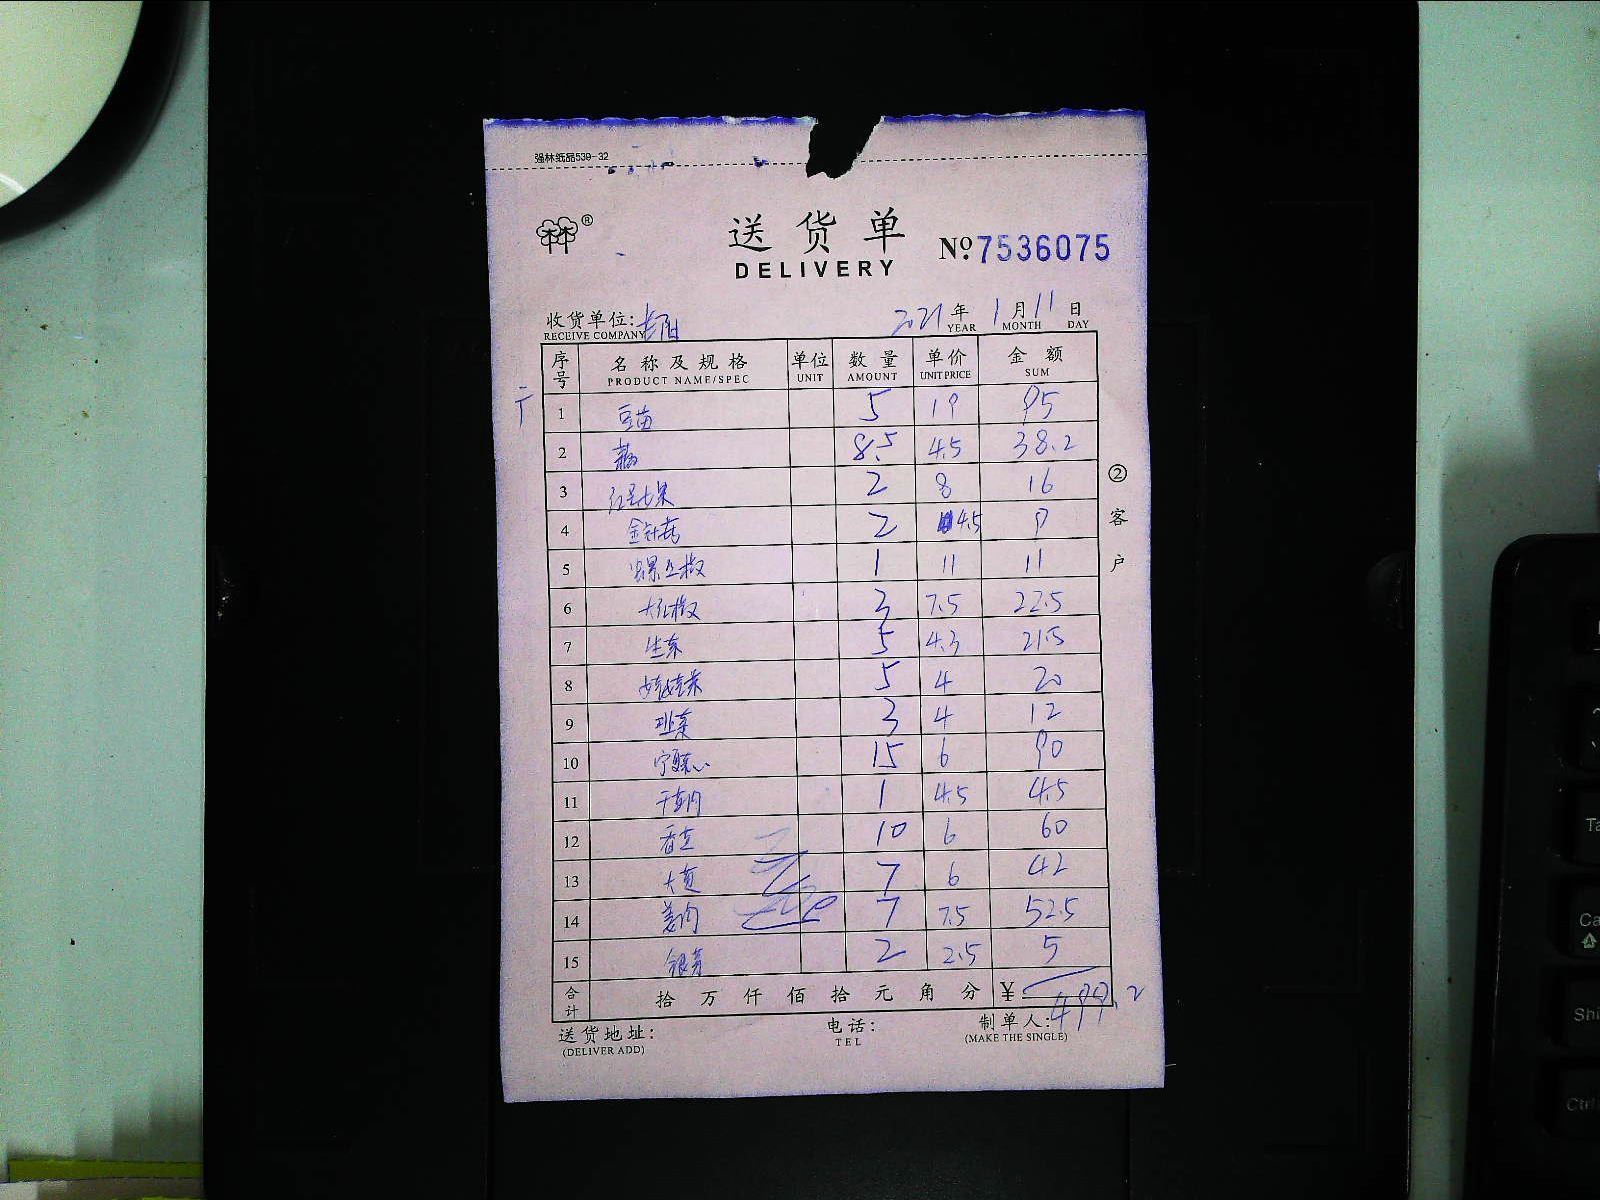 强林纸品539-32
送货单
DELIVERY
№ 7536075
收货单位:
RECEIVE COMPANY
2021 年 1 月 11 日
YEAR MONTH DAY
序号 名称及规格 单位 数量 单价 金额
PRODUCT NAME/SPEC UNIT AMOUNT UNIT PRICE SUM
1 豆苗 5 19 95
2 8.5 4.5 38.2
3 2 8 16
4 金针菇 2 4.5 9
5 螺丝椒 1 11 11
6 大红椒 3 7.5 22.5
7 生菜 5 4.3 21.5
8 娃娃菜 5 4 20
9 3 4 12
10 15 6 90
11 1 4.5 4.5
12 10 6 60
13 大 7 6 42
14 7 7.5 52.5
15 银芽 2 2.5 5
合计 拾万仟佰拾元角分 ¥ 499.2
送货地址: 电话: 制单人:
(DELIVER ADD) TEL (MAKE THE SINGLE)
②客户
Ta
Ca
Shi
Ctrl